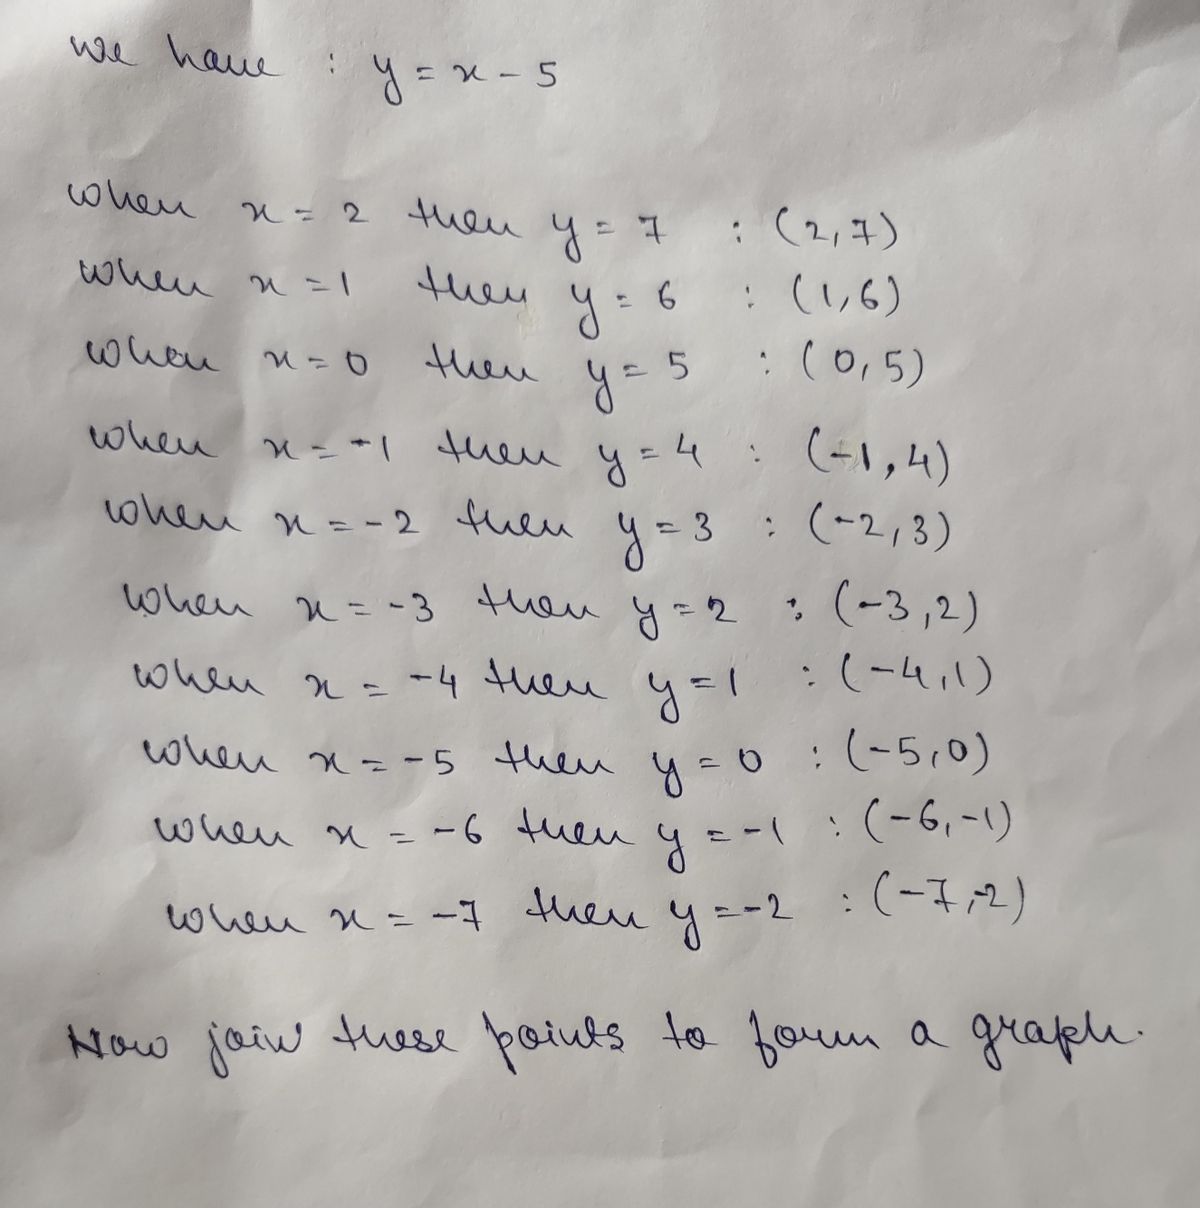 we have : y = x - 5
when x = 2 then y = 7 : (2,7)
when x = 1 then y = 6 : (1,6)
when x = 0 then y = 5 : (0,5)
when x = -1 then y = 4 : (-1,4)
when x = -2 then y = 3 : (-2,3)
when x = -3 then y = 2 : (-3,2)
when x = -4 then y = 1 : (-4,1)
when x = -5 then y = 0 : (-5,0)
when x = -6 then y = -1 : (-6,-1)
when x = -7 then y = -2 : (-7,-2)
Now join these points to form a graph.